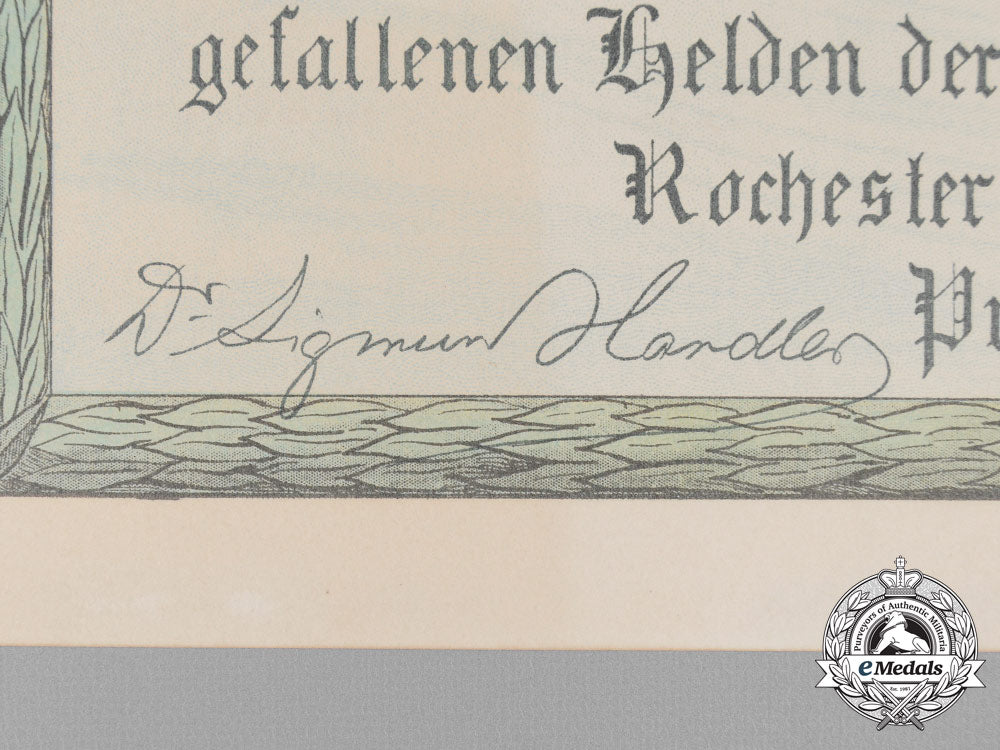 gefallenen Helden der
Rochester
Dr. Sigmund Handler
Pr
Purveyors of Authentic Militaria
eMedals
Est. 1987